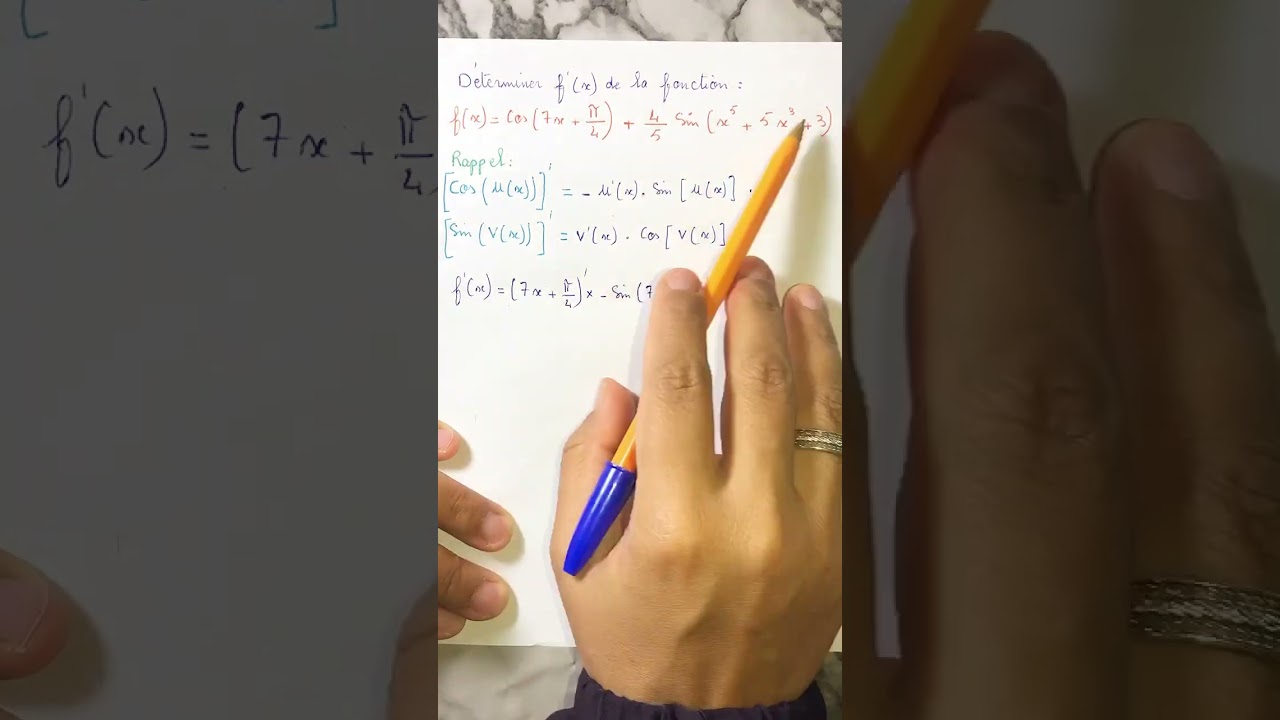 Déterminer f'(x) de la fonction :
f(x) = Cos(7x + π/4) + 4/5 Sin(x⁵ + 5x³ + 3)
Rappel :
[Cos(u(x))]' = - u'(x) . Sin[u(x)] .
[Sin(V(x))]' = V'(x) . Cos[V(x)]
f'(x) = (7x + π/4)' x - Sin(7